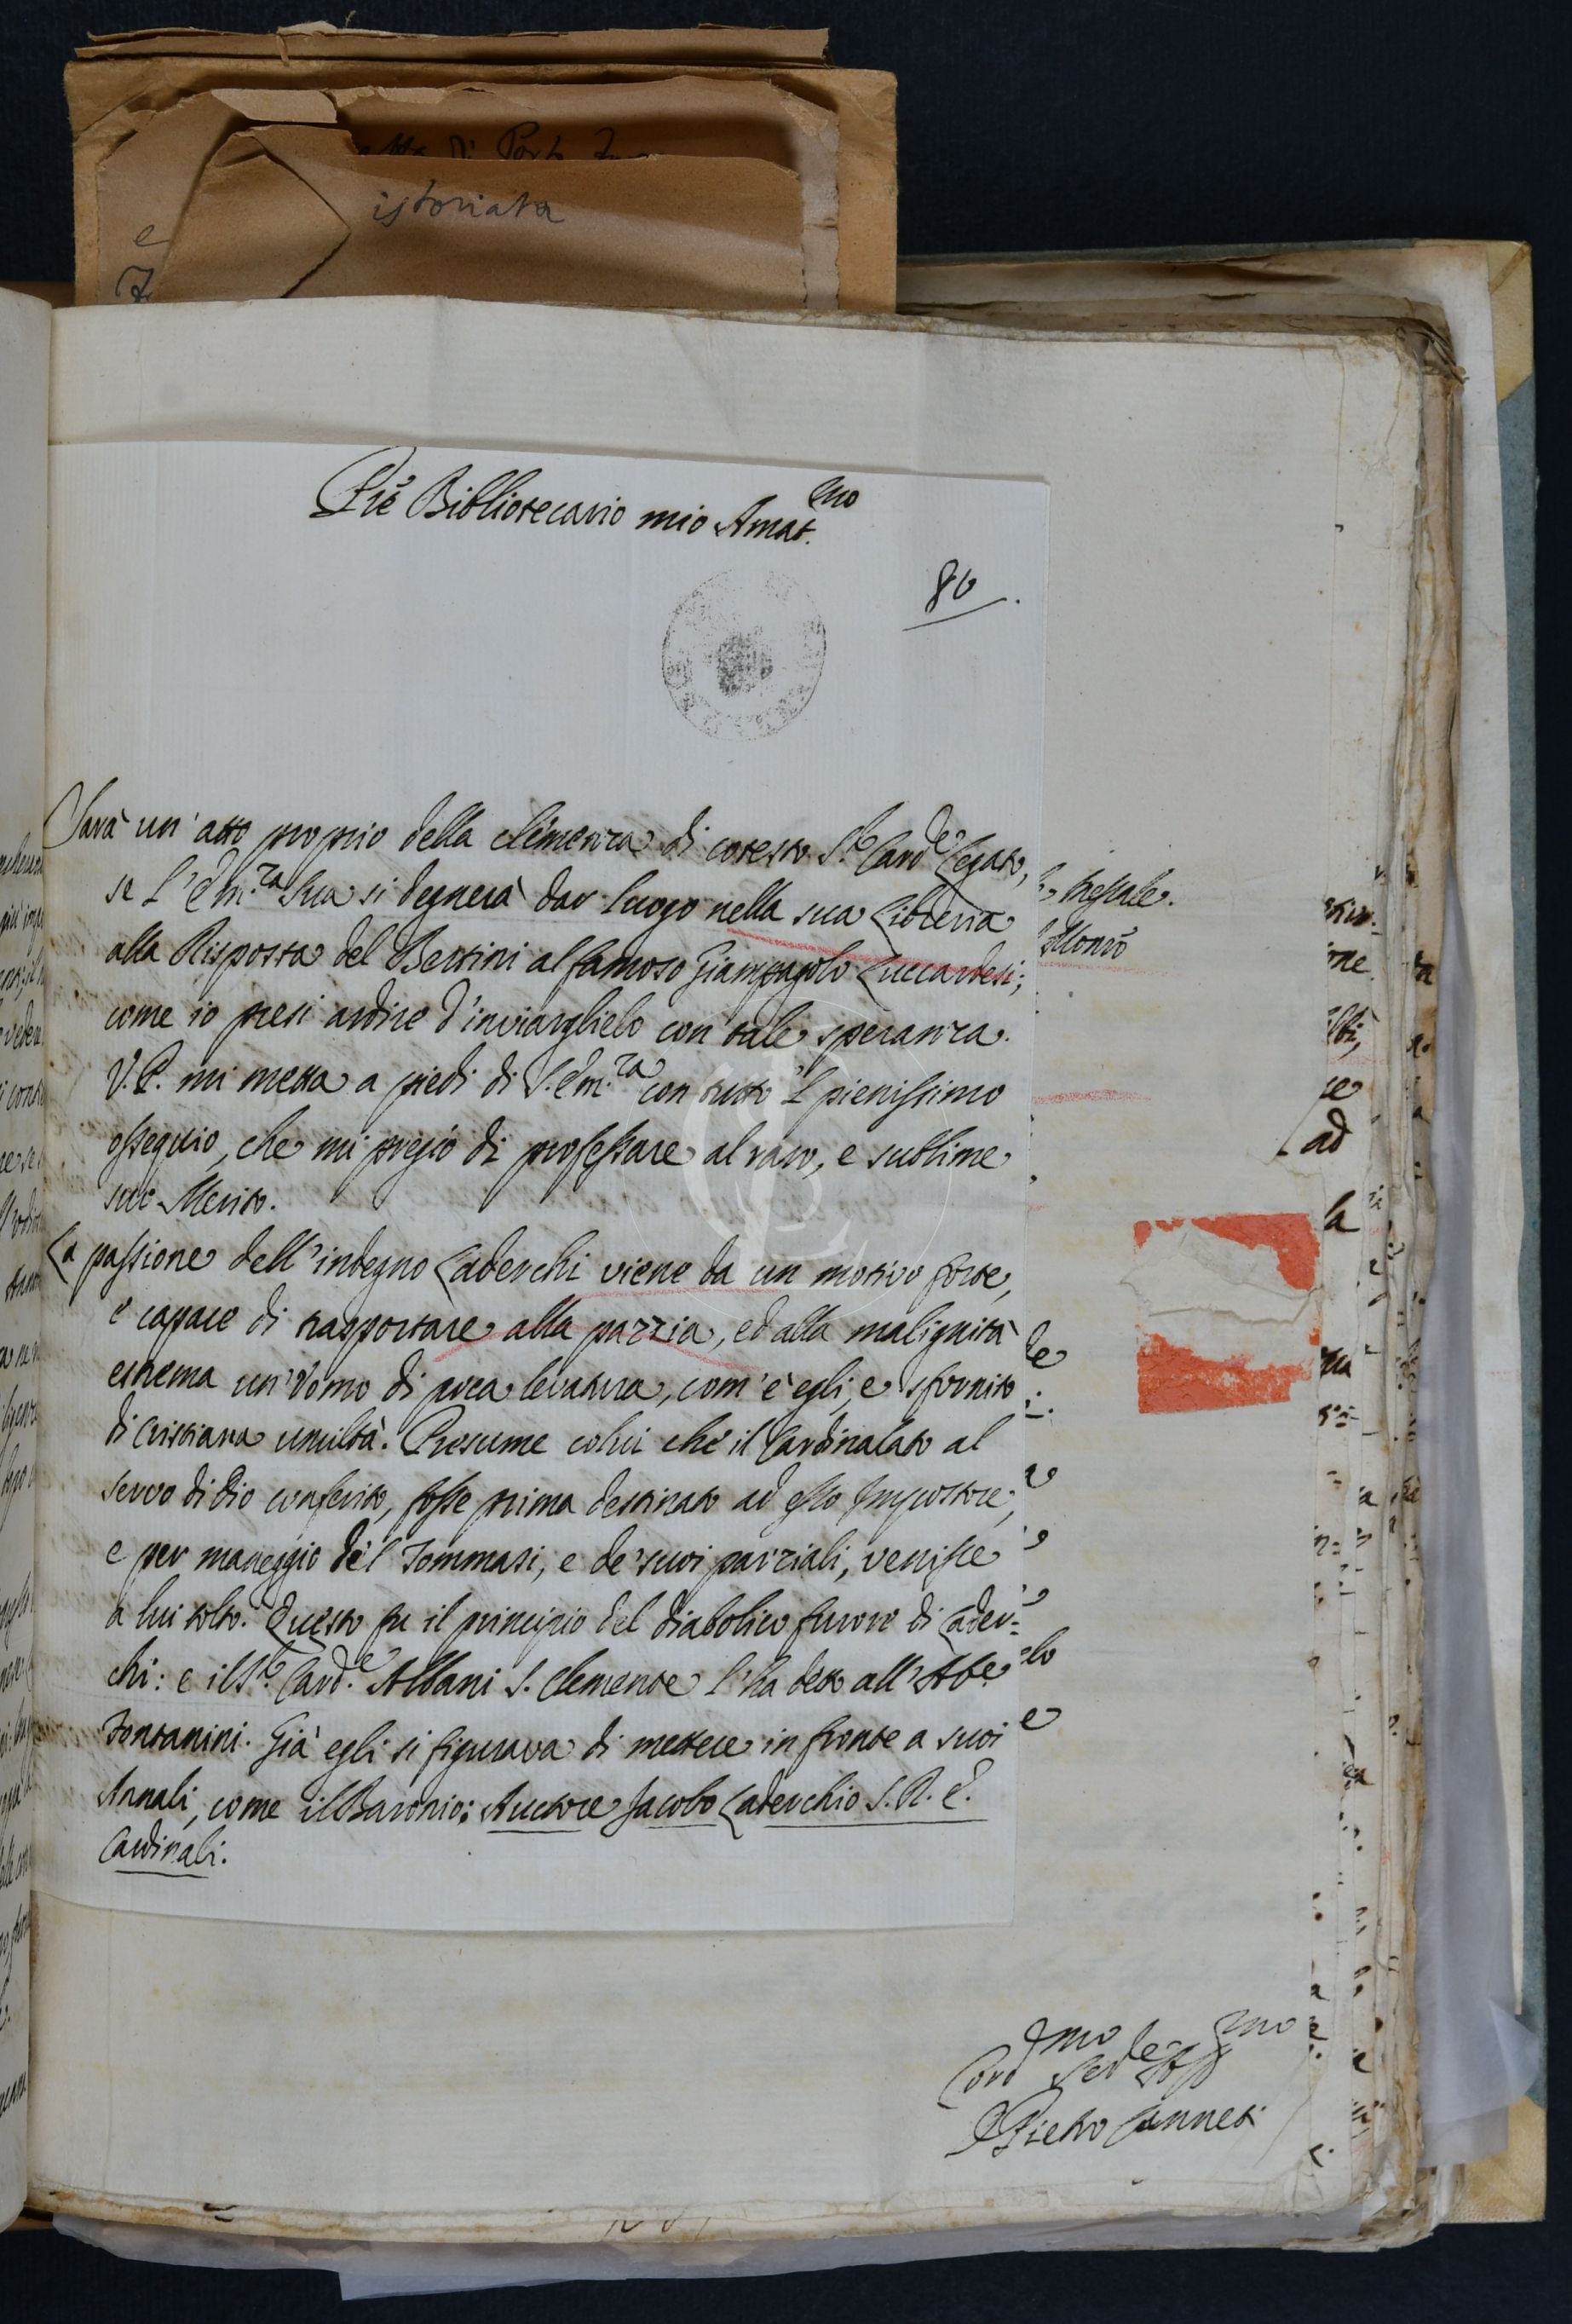 istoriata
Prē Bibliotecario mio Amat.mo
86.
Sarà un' atto proprio della clemenza di cotesto S.r Card.le Legato,
se l'Em.za Sua si degnerà dar luogo nella sua Libreria
alla Risposta del Bertini al famoso Giampagolo Luccardesi;
come io presi ardire d'inviarglielo con tale speranza.
V.P. mi metta a piedi di S. Em.za con tutto 'l pienissimo
ossequio, che mi pregio di professare al raro, e sublime
suo Merito.
La passione dell'indegno Laderchi viene da un motivo forte,
e capace di trasportare alla pazzia, ed alla malignità
estrema un'Vomo di poca levatura, com'è egli, e sfornito
di cristiana umiltà. Presume colui che il Cardinalato al
servo di Dio conferito, fosse prima destinato ad esso Impostore,
e per maneggio de'l Tommasi, e de'suoi parziali, venisse
a lui tolto. Questo fu il principio del diabolico furore di Lader=
chi: e il S.r Card.e Albani S. Clemente l'ha detto all'Ab.e
Fontanini. Già egli si figurava di mettere in fronte a suoi
Annali, come il Baronio: Auctore Jacobo Laderchio S.R.E.
Cardinali.
Pietro Canneti